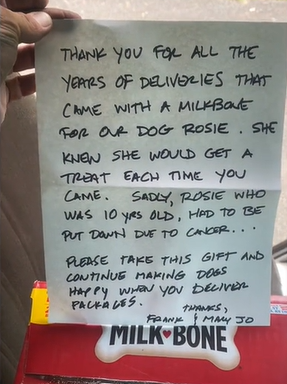 THANK YOU FOR ALL THE
YEARS OF DELIVERIES THAT
CAME WITH A MILKBONE
FOR OUR DOG ROSIE. SHE
KNEW SHE WOULD GET A
TREAT EACH TIME YOU
CAME. SADLY, ROSIE WHO
WAS 10 YRS OLD, HAD TO BE
PUT DOWN DUE TO CANCER...
PLEASE TAKE THIS GIFT AND
CONTINUE MAKING DOGS
HAPPY WHEN YOU DELIVER
PACKAGES.
THANKS,
FRANK & MARY JO
MILK-BONE